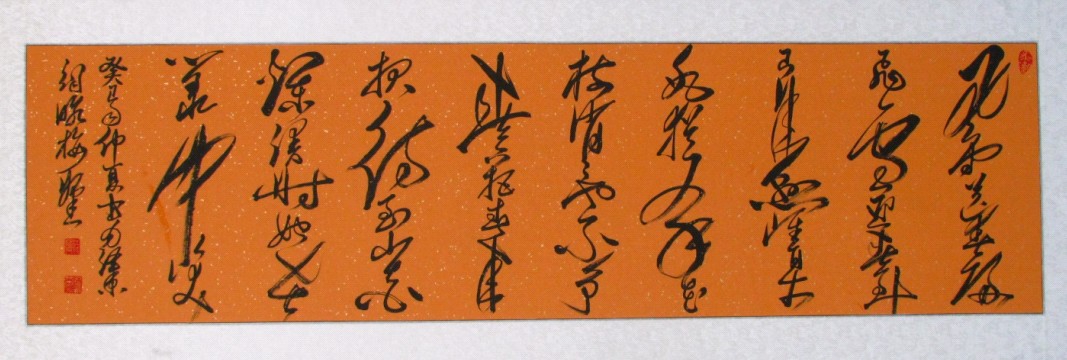 风雨送春歸
飛雪迎春到
已是悬崖百丈
冰犹有花
枝俏也不争
春只把春来
报待到山花
烂漫时她在
丛中笑
癸巳仲夏书毛泽东
词咏梅